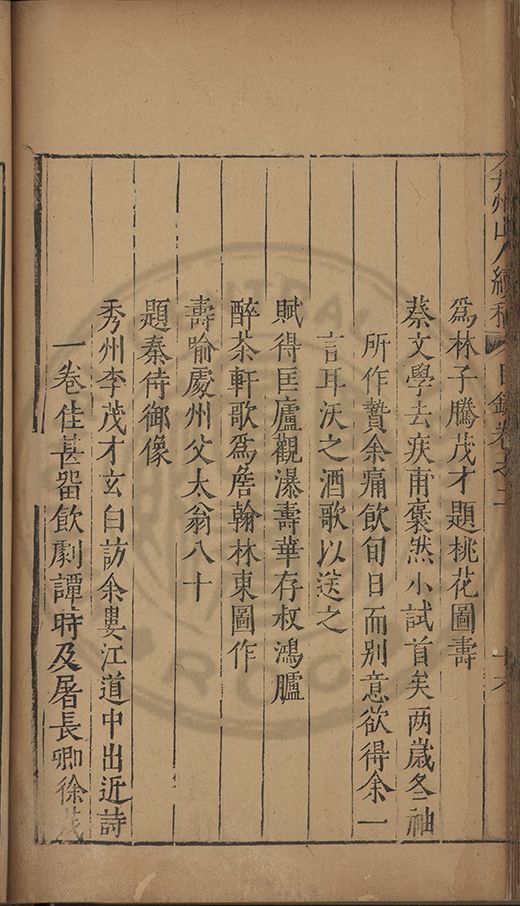 弇州山人續稿 目錄卷之二 十六
爲林子騰茂才題桃花圖壽
蔡文學去疾甫褎然小試首矣两歲冬袖
所作贄余痛飲旬日而别意欲得余一
言耳沃之酒歌以送之
賦得匡廬觀瀑壽華存叔鴻臚
醉茶軒歌爲詹翰林東圖作
壽喻處州父太翁八十
題秦待御像
秀州李茂才玄白訪余婁江道中出近詩
一卷佳甚留飲劇譚時及屠長卿徐茂